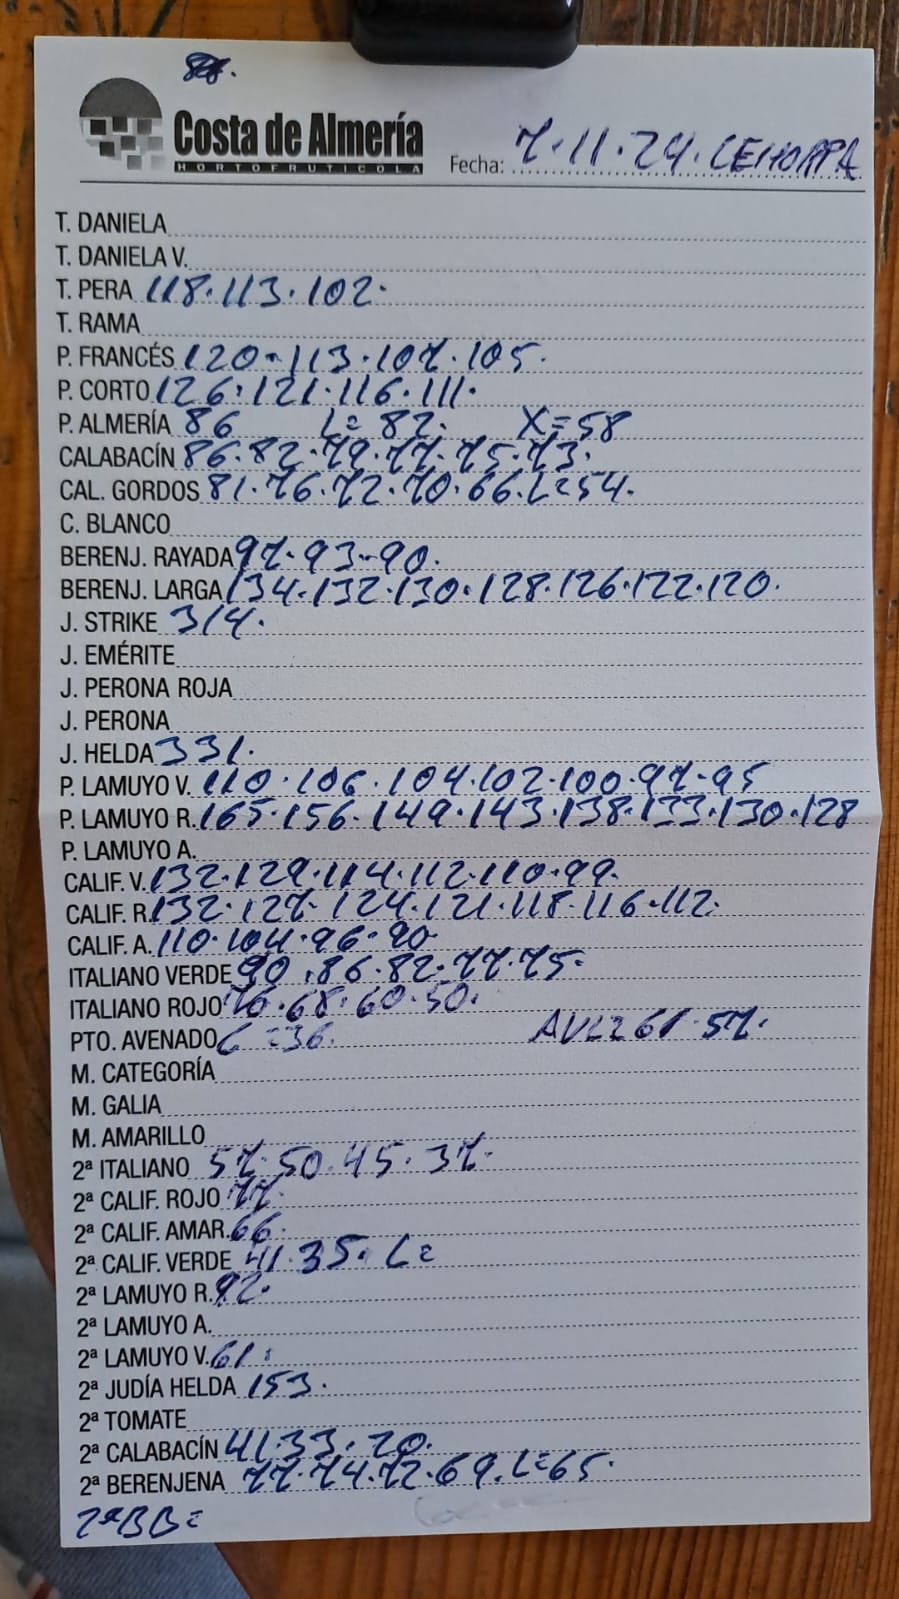 Costa de Almería
HORTOFRUTICOLA
Fecha: 7.11.24. CEHORPA
T. DANIELA
T. DANIELA V.
T. PERA 118.113.102.
T. RAMA
P. FRANCÉS 120.113.107.105.
P. CORTO 126.121.116.111.
P. ALMERÍA 86 L=82. X=58
CALABACÍN 86.82.79.77.75.73.
CAL. GORDOS 81.76.72.70.66.L=54.
C. BLANCO
BERENJ. RAYADA 97.93-90.
BERENJ. LARGA 134.132.130.128.126.122.120.
J. STRIKE 314.
J. EMÉRITE
J. PERONA ROJA
J. PERONA
J. HELDA 331.
P. LAMUYO V. 110.106.104.102.100.97.95
P. LAMUYO R. 165.156.149.143.138.133.130.128
P. LAMUYO A.
CALIF. V. 132.129.114.112.110.99.
CALIF. R. 132.127.124.121.118.116.112.
CALIF. A. 110.104.96.90
ITALIANO VERDE 90.86.82.77.75.
ITALIANO ROJO 76.68.60.50.
PTO. AVENADO C=36. 61.57.
M. CATEGORÍA
M. GALIA
M. AMARILLO
2ª ITALIANO 57.50.45.37.
2ª CALIF. ROJO 77.
2ª CALIF. AMAR. 66.
2ª CALIF. VERDE 41.35. L=
2ª LAMUYO R. 92.
2ª LAMUYO A.
2ª LAMUYO V. 61.
2ª JUDÍA HELDA 153.
2ª TOMATE
2ª CALABACÍN 41.33.20.
2ª BERENJENA 77.74.72.69.L=65.
2ªBB=